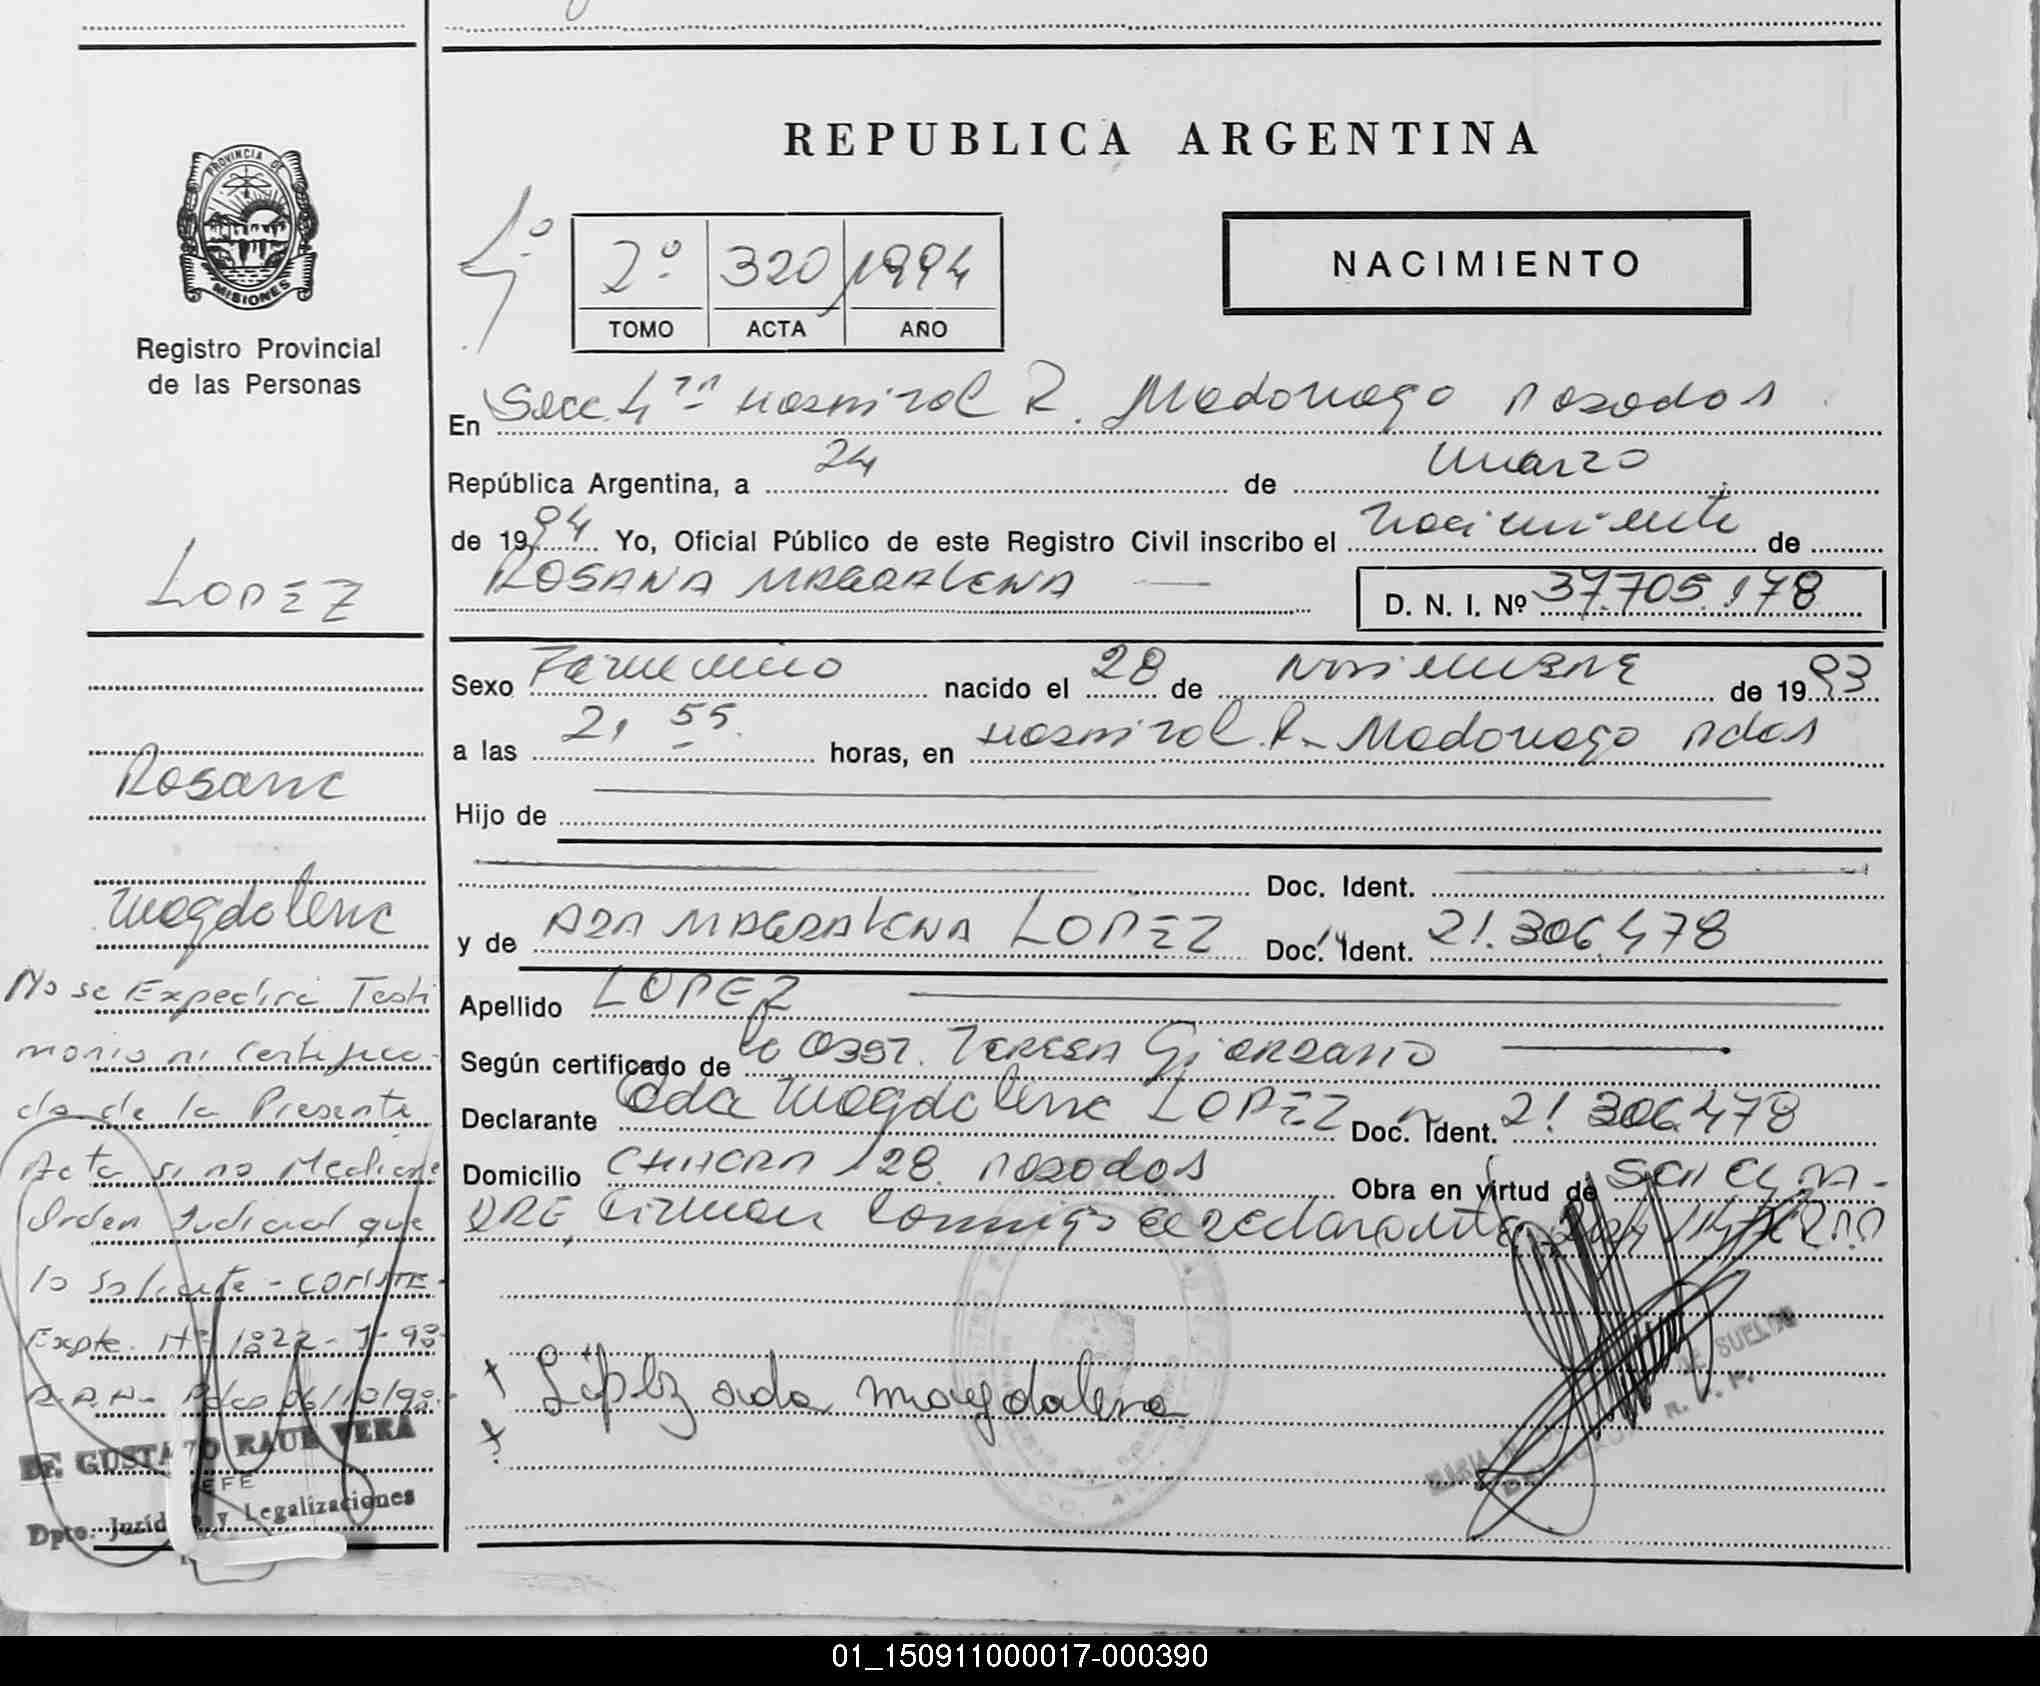 REPUBLICA ARGENTINA
PROVINCIA DE
MISIONES
Registro Provincial
de las Personas
2º 320 1994
TOMO ACTA AÑO
NACIMIENTO
En Secc 4ta Hospital R. Madariaga Posadas
República Argentina, a 24 de Marzo
de 1994 Yo, Oficial Público de este Registro Civil inscribo el nacimiento de
ROSANA MAGDALENA
D. N. I. Nº 37.705.178
Sexo Femenino nacido el 28 de Noviembre de 1993
a las 21,55 horas, en Hospital R. Madariaga Pdas
Hijo de
Doc. Ident.
y de ADA MAGDALENA LOPEZ Doc. Ident. 21.306.478
Apellido LOPEZ
Según certificado de la Obst. TERESA Giordano
Declarante Ada Magdalena LOPEZ Doc. Ident. 21.306.478
Domicilio CHACRA 128 Posadas Obra en virtud de SER LA MA-
DRE, Firman Conmigo la declarante
López ada magdalena
LOPEZ
Rosana
Magdalena
No se Expedirá Testi
monio ni Certifica-
do de la Presente
Acta si no Mediare
Orden Judicial que
lo Solicite - CONSTE-
Expte. Nº 1822-
Pdas 06/10/98
GUSTAVO RAUL VERA
JEFE
Dpto. Jurídico y Legalizaciones
DE SUELDO
R. P. P.
01_150911000017-000390